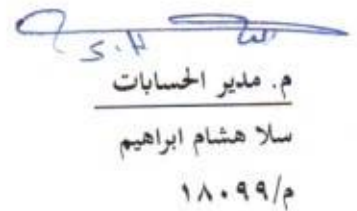 م. مدير الحسابات
سلا هشام ابراهيم
م/١٨٠٩٩